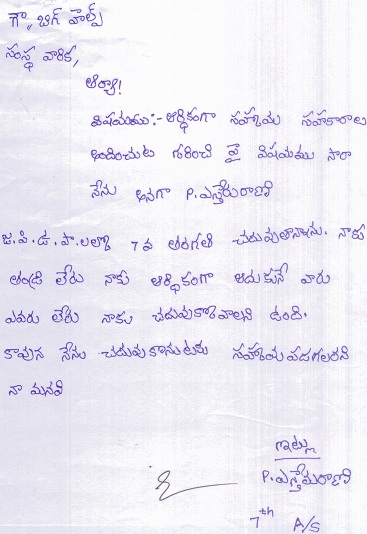 గౌ,, బిగ్ హెల్ప్
సంస్థ వారికి,
ఆర్యా!
విషయము:- ఆర్థికంగా సహాయ సహకారాలు
అందించుట గురించి పై విషయము సారా
నేను అనగా P. ఎస్తేరురాణి
జ.పి.ఉ.పా.లలో 7వ తరగతి చదువుతున్నాను. నాకు
తండ్రి లేరు నాకు ఆర్థికంగా ఆదుకునే వారు
ఎవరు లేరు నాకు చదువుకోవాలని ఉంది.
కావున నేను చదువుకొనుటకు సహాయ పడగలరని
నా మనవి
ఇట్లు
P. ఎస్తేరురాణి
7th A/S